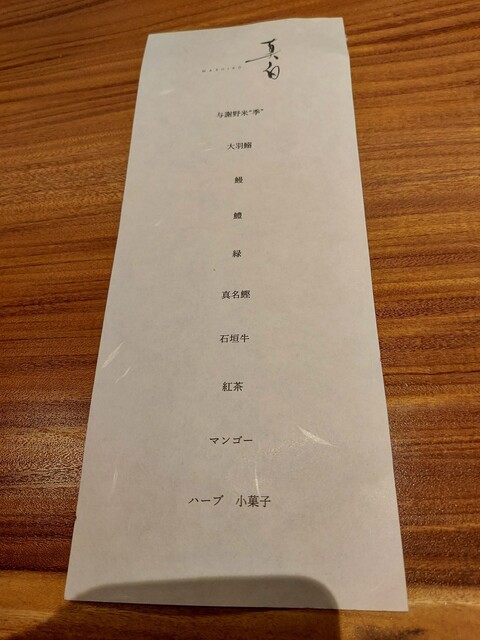 真白
与謝野米"季"
大羽鰯
鰻
鱧
緑
真名鰹
石垣牛
紅茶
マンゴー
ハーブ　小菓子